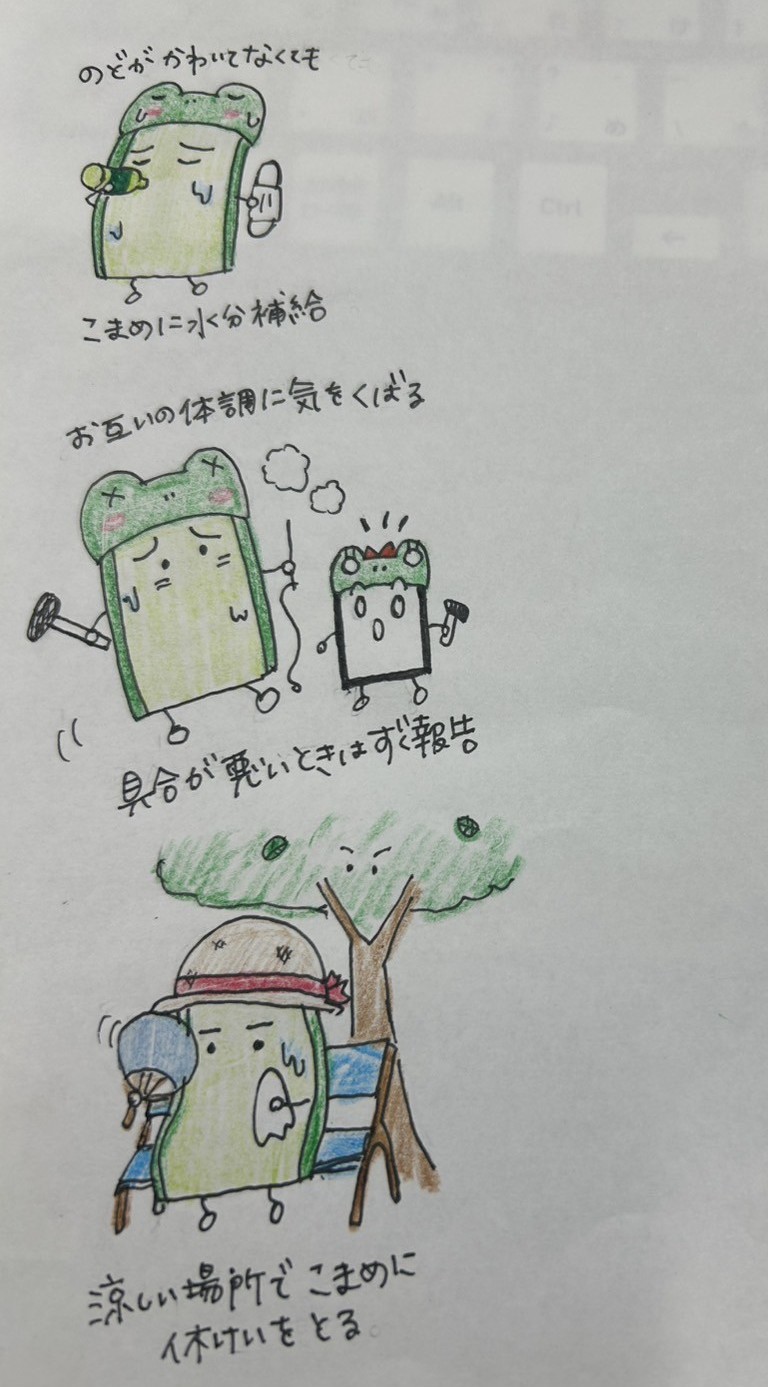 のどが かわいてなくても
こまめに水分補給
お互いの体調に気をくばる
具合が悪いときはすぐ報告
涼しい場所で こまめに
休けいをとる